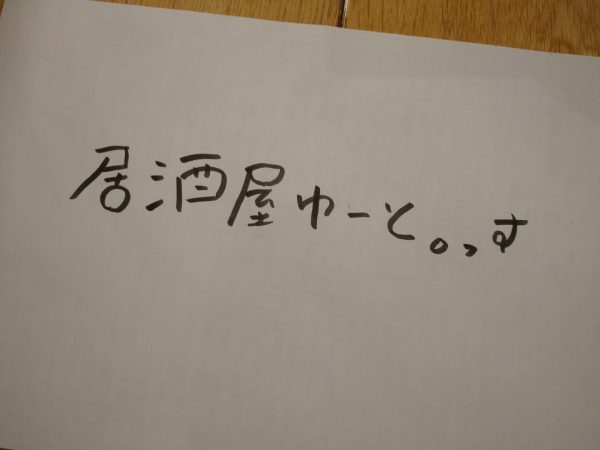 居酒屋ゆーと。っす